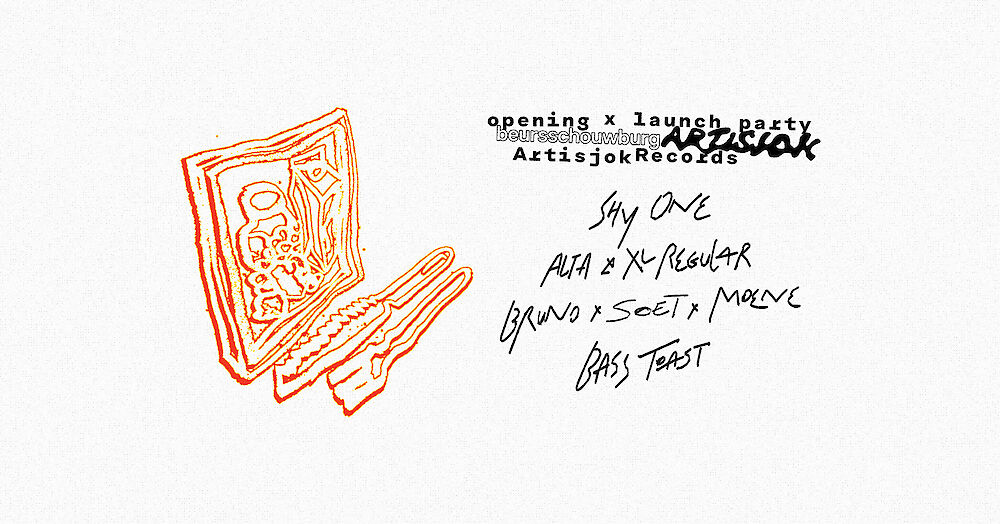 opening x launch party
beursschouwburg ARTISJOK
ArtisjokRecords
SHY ONE
ALTA x XL REGULAR
BRUNO x SOET x MOENE
BASS TOAST